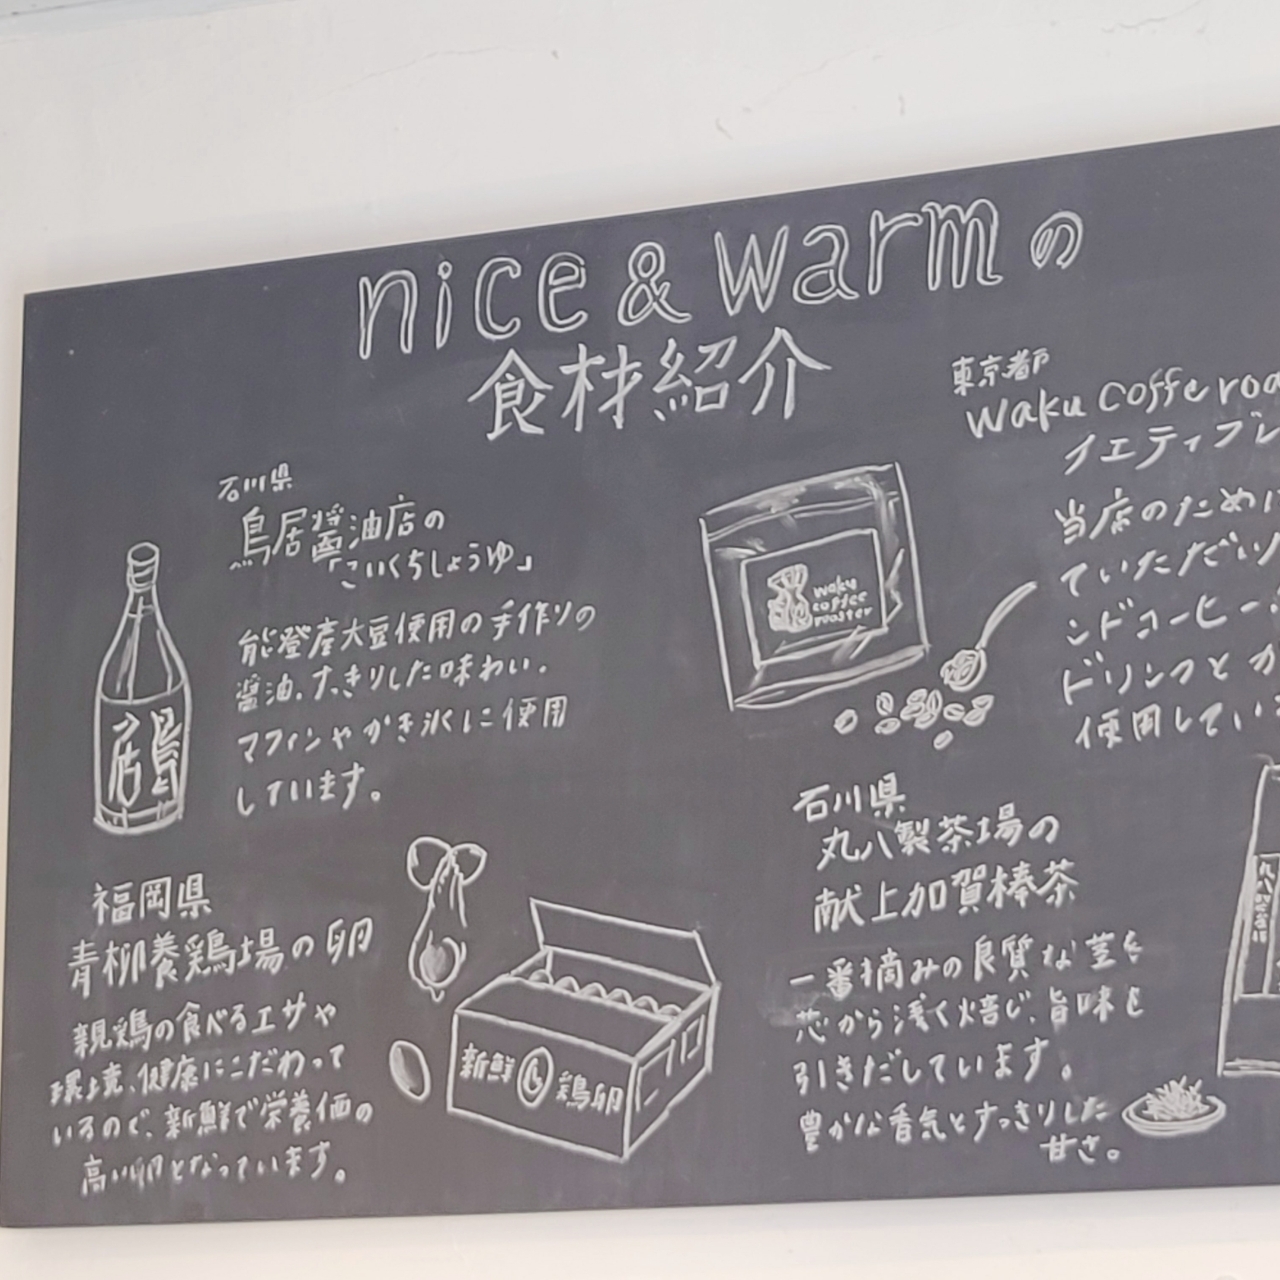 nice & warm の
食材紹介
石川県
鳥居醤油店の
「こいくちしょうゆ」
能登産大豆使用の手作りの
醤油。すっきりした味わい。
マフィンやかき氷に使用
しています。
鳥居
東京都
Waku coffe roa
イエティブレ
当店のために
ていただいた
ンドコーヒー
ドリンクとか
使用してい
waku
coffee
roaster
福岡県
青柳養鶏場の卵
親鶏の食べるエサや
環境、健康にこだわって
いるので、新鮮で栄養価の
高い卵となっています。
新鮮 鶏卵
石川県
丸八製茶場の
献上加賀棒茶
一番摘みの良質な茎を
芯から浅く焙じ、旨味を
引きだしています。
豊かな香気とすっきりした
甘さ。